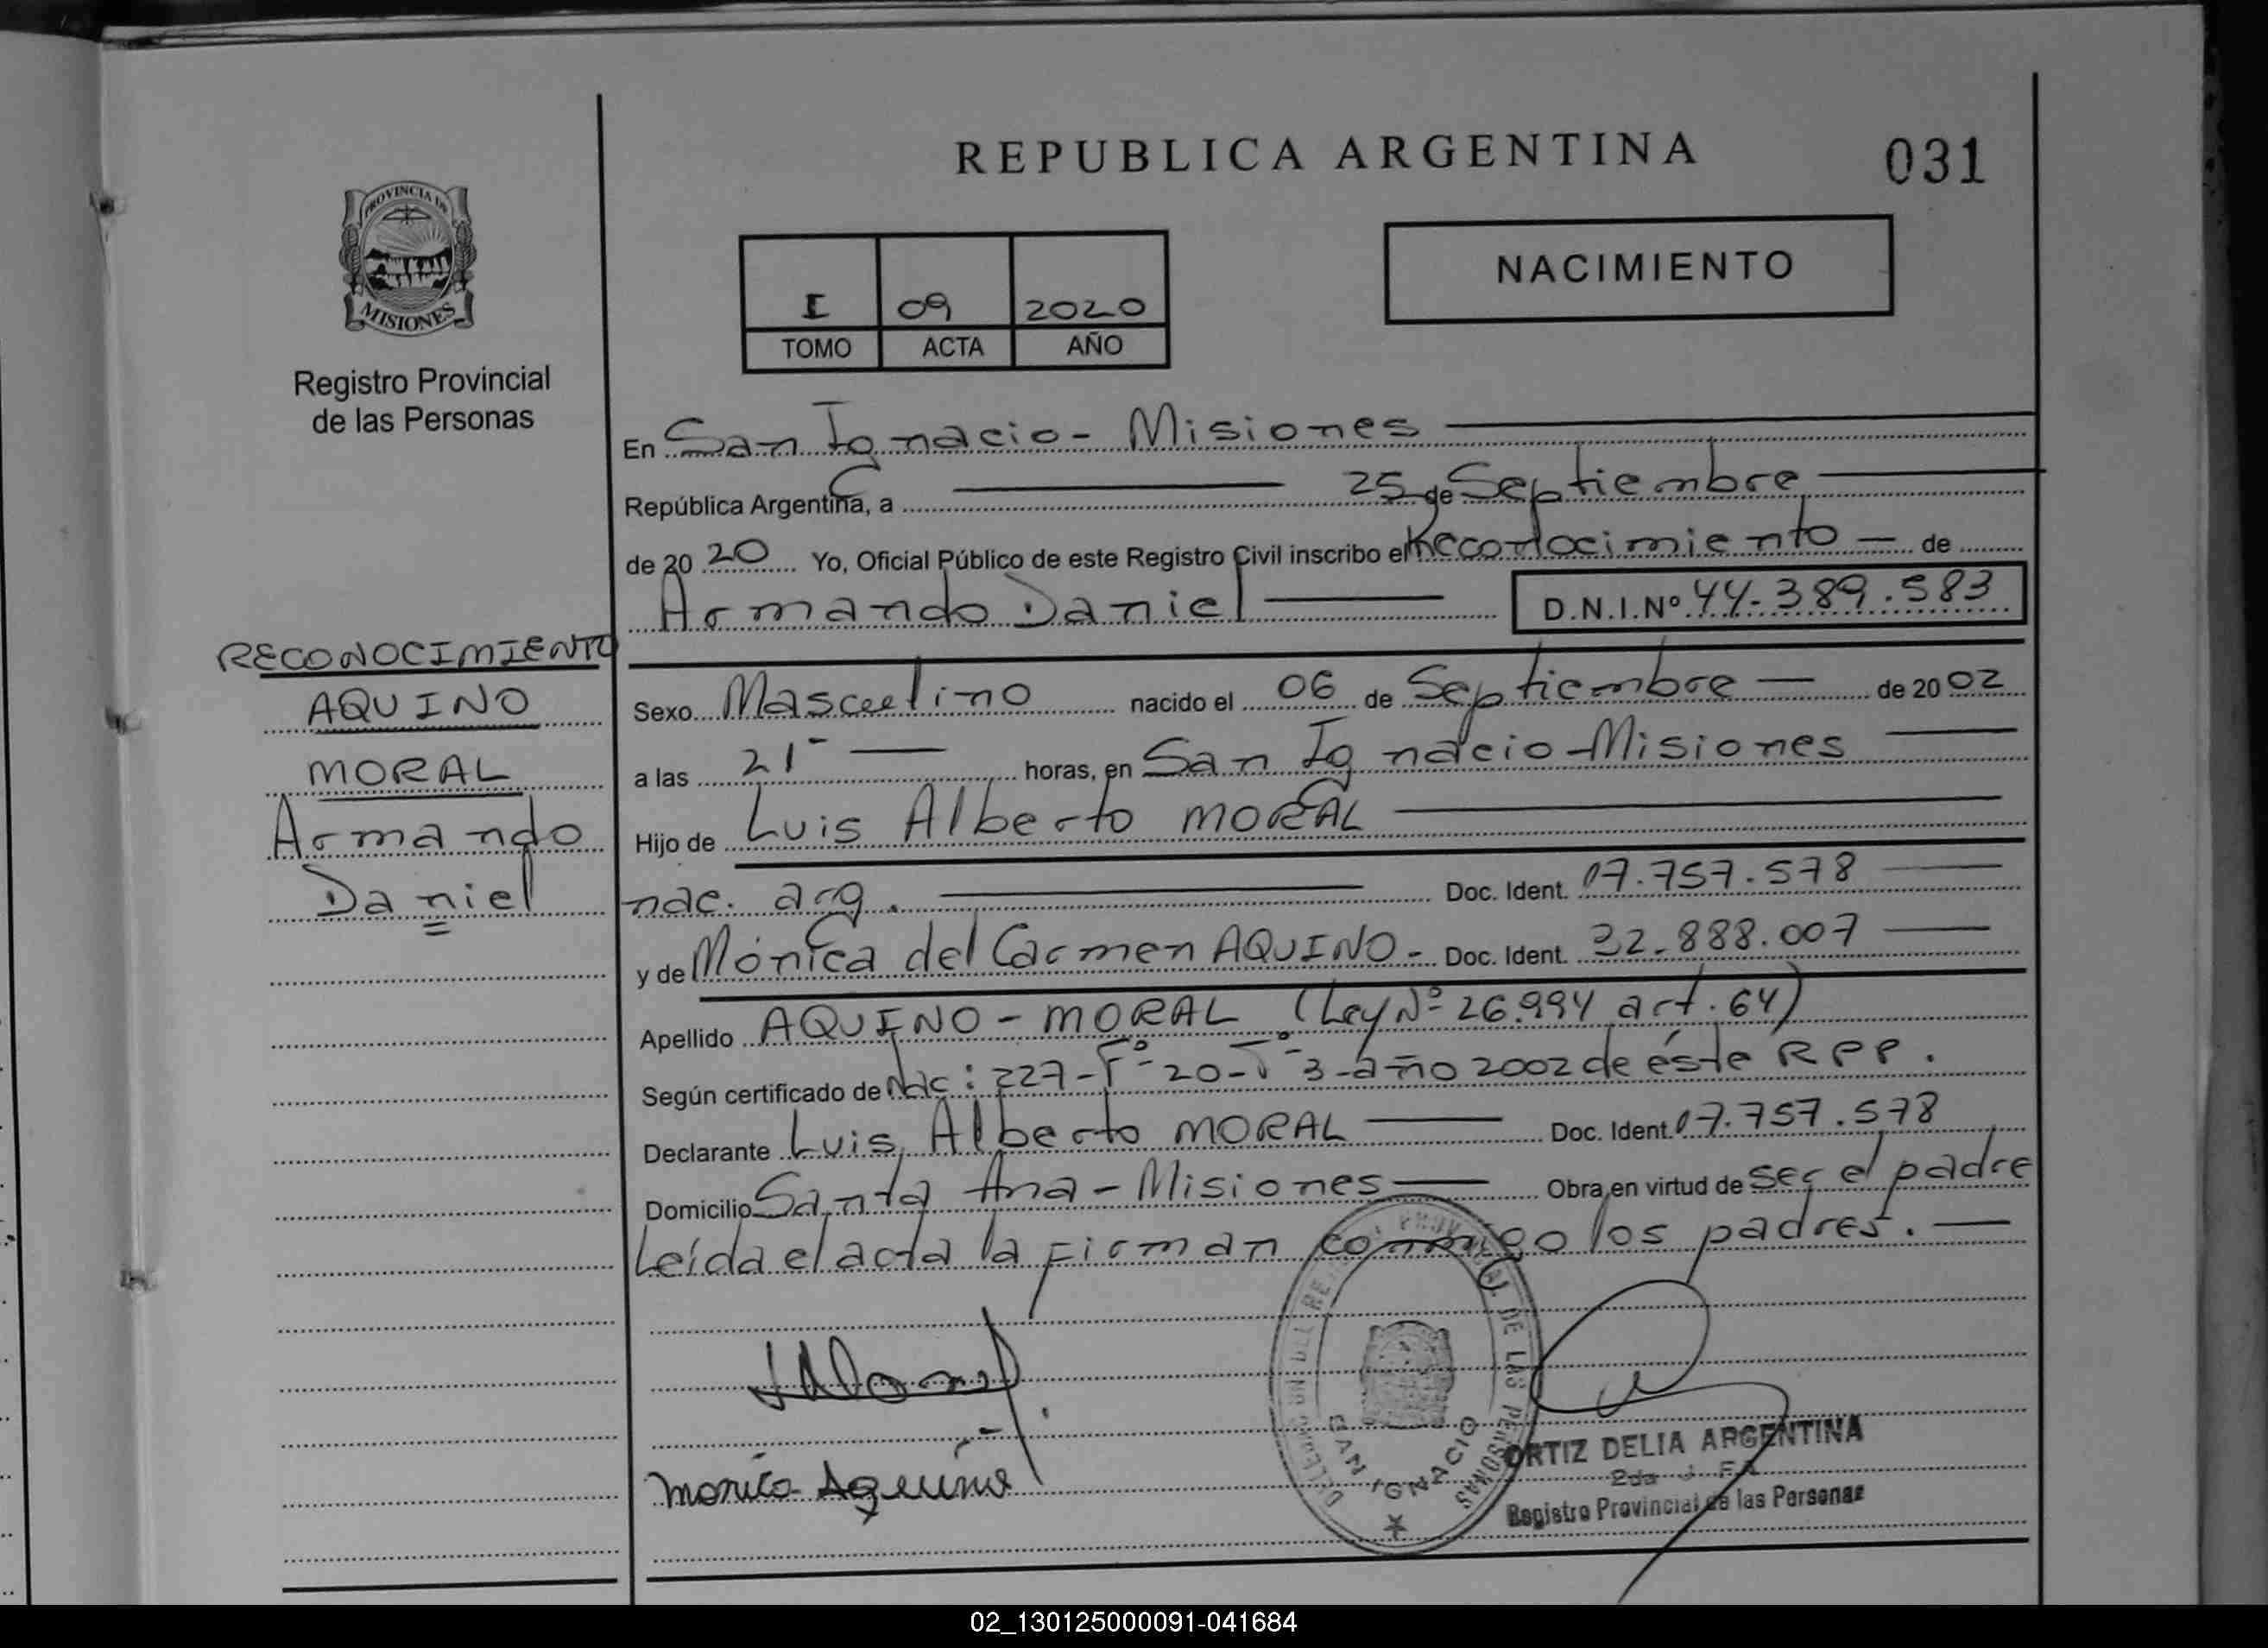 REPUBLICA ARGENTINA
031
PROVINCIA DE
MISIONES
Registro Provincial
de las Personas
NACIMIENTO
I 09 2020
TOMO ACTA AÑO
En San Ignacio - Misiones
República Argentina, a 25 de Septiembre
de 20 20 Yo, Oficial Público de este Registro Civil inscribo el Reconocimiento - de
Armando Daniel D.N.I.Nº 44.389.583
RECONOCIMIENTO
AQUINO
MORAL
Armando
Daniel
Sexo Masculino nacido el 06 de Septiembre - de 20 02
a las 21 - horas, en San Ignacio - Misiones
Hijo de Luis Alberto MORAL
nac. arg. Doc. Ident. 17.757.578
y de Mónica del Carmen AQUINO - Doc. Ident. 32.888.007
Apellido AQUINO - MORAL (Ley Nº 26.994 art. 64)
Según certificado de Nac: 227 - Fº 20 - Tº 3 - año 2002 de éste RPP.
Declarante Luis Alberto MORAL Doc. Ident. 17.757.578
Domicilio Santa Ana - Misiones Obra en virtud de ser el padre
Leída el acta la firman conmigo los padres.
Monica Aquino
DE LAS PERSONAS
SAN IGNACIO
ORTIZ DELIA ARGENTINA
Registro Provincial de las Personas
02_130125000091-041684